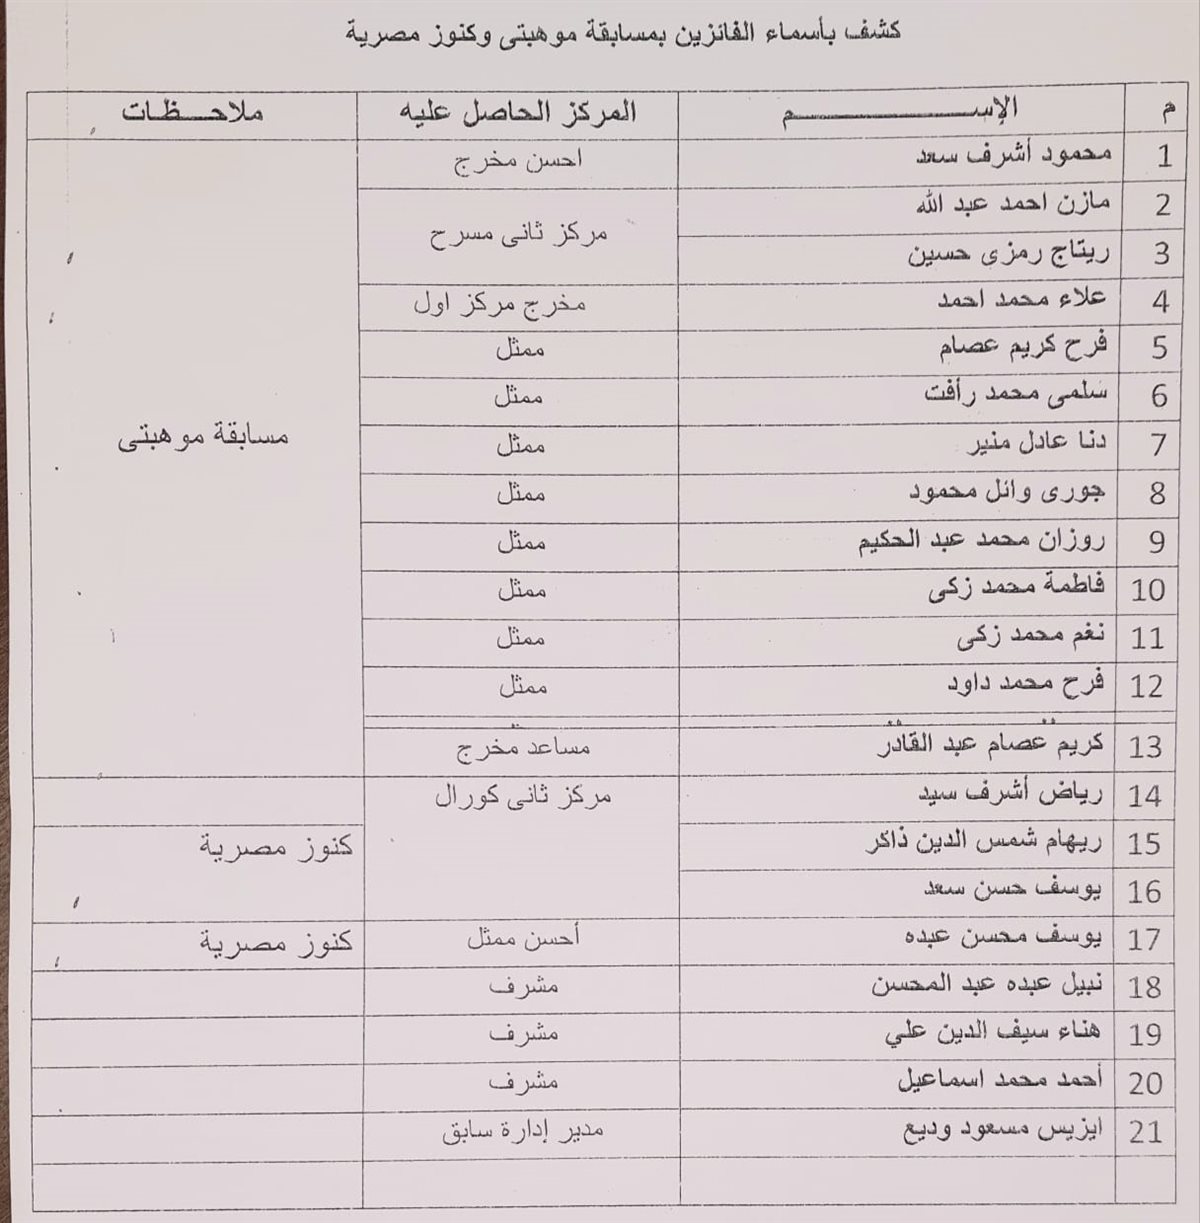 كشف بأسماء الفائزين بمسابقة موهبتى وكنوز مصرية
م الإســــــم المركز الحاصل عليه ملاحـــظـات
1 محمود أشرف سعد احسن مخرج
2 مازن احمد عبد الله مركز ثانى مسرح
3 ريتاج رمزى حسين
4 علاء محمد احمد مخرج مركز اول
5 فرح كريم عصام ممثل
6 سلمى محمد رأفت ممثل
7 دنا عادل منير ممثل مسابقة موهبتى
8 جورى وائل محمود ممثل
9 روزان محمد عبد الحكيم ممثل
10 فاطمة محمد زكى ممثل
11 نغم محمد زكى ممثل
12 فرح محمد داود ممثل
13 كريم عصام عبد القادر مساعد مخرج
14 رياض أشرف سيد مركز ثانى كورال
15 ريهام شمس الدين ذاكر كنوز مصرية
16 يوسف حسن سعد
17 يوسف محسن عبده أحسن ممثل كنوز مصرية
18 نبيل عبده عبد المحسن مشرف
19 هناء سيف الدين علي مشرف
20 أحمد محمد اسماعيل مشرف
21 ايزيس مسعود وديع مدير إدارة سابق